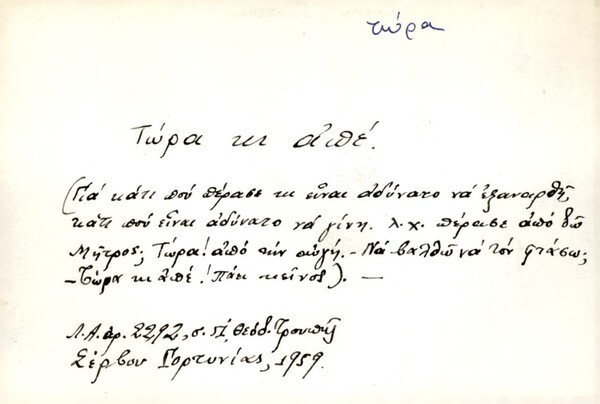 τώρα
Τώρα κι ἀπέ.
(Γιά κάτι πού πέρασε κι εἶναι ἀδύνατο νά ξαναρθῆ,
κάτι πού εἶναι ἀδύνατο νά γίνη. λ.χ. πέρασε ἀπό δῶ
Μῆτρος; Τώρα! ἀπό τήν αὐγή. - Νά βαλθῶ νά τόν φτάσω;
- Τώρα κι ἀπέ! Πάει κεῖνος). —
Λ.Α. ἀρ. 2292, σ. Θεόδ. Τρουπῆ
Σέρβου Γορτυνίας, 1959.